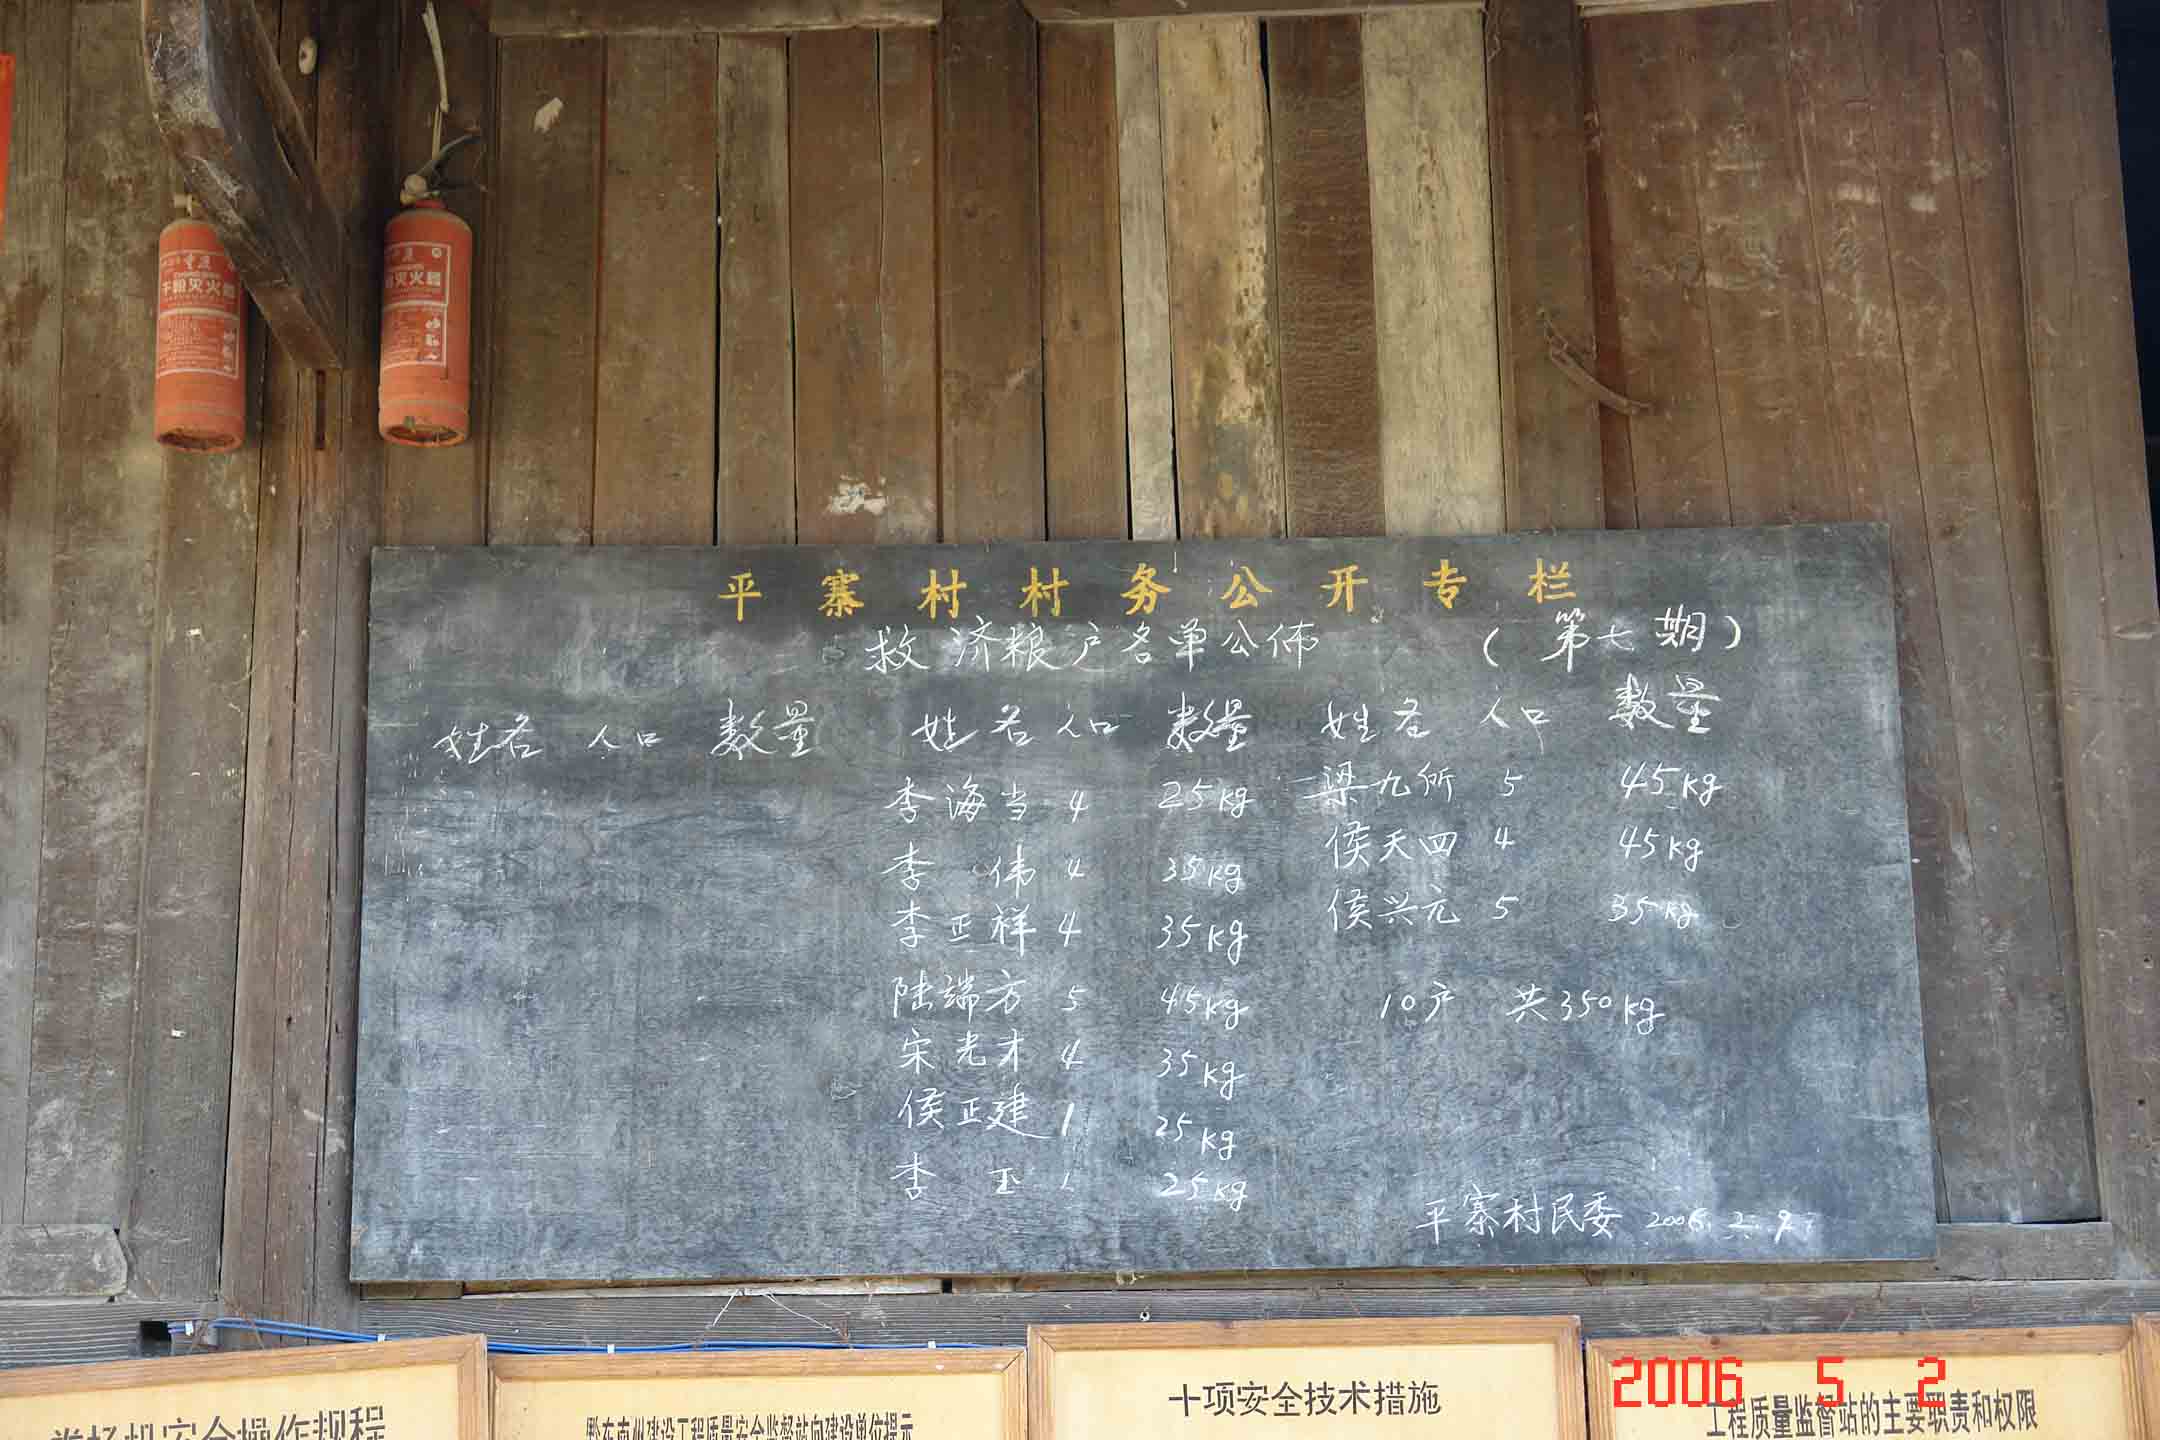 重庆
干粉灭火器
灭火器
平寨村村务公开专栏
救济粮户名单公佈 (第七期)
姓名 人口 数量 姓名 人口 数量 姓名 人口 数量
李海当 4 25kg 梁九所 5 45kg
李伟 4 35kg 侯天四 4 45kg
李正祥 4 35kg 侯兴元 5 35kg
陆端方 5 45kg 10户 共350kg
宋光才 4 35kg
侯正建 1 25kg
李玉 1 25kg
平寨村民委 2006.2.9
卷扬机安全操作规程
黔东南州建设工程质量安全监督站向建设单位提示
十项安全技术措施
工程质量监督站的主要职责和权限
2006 5 2